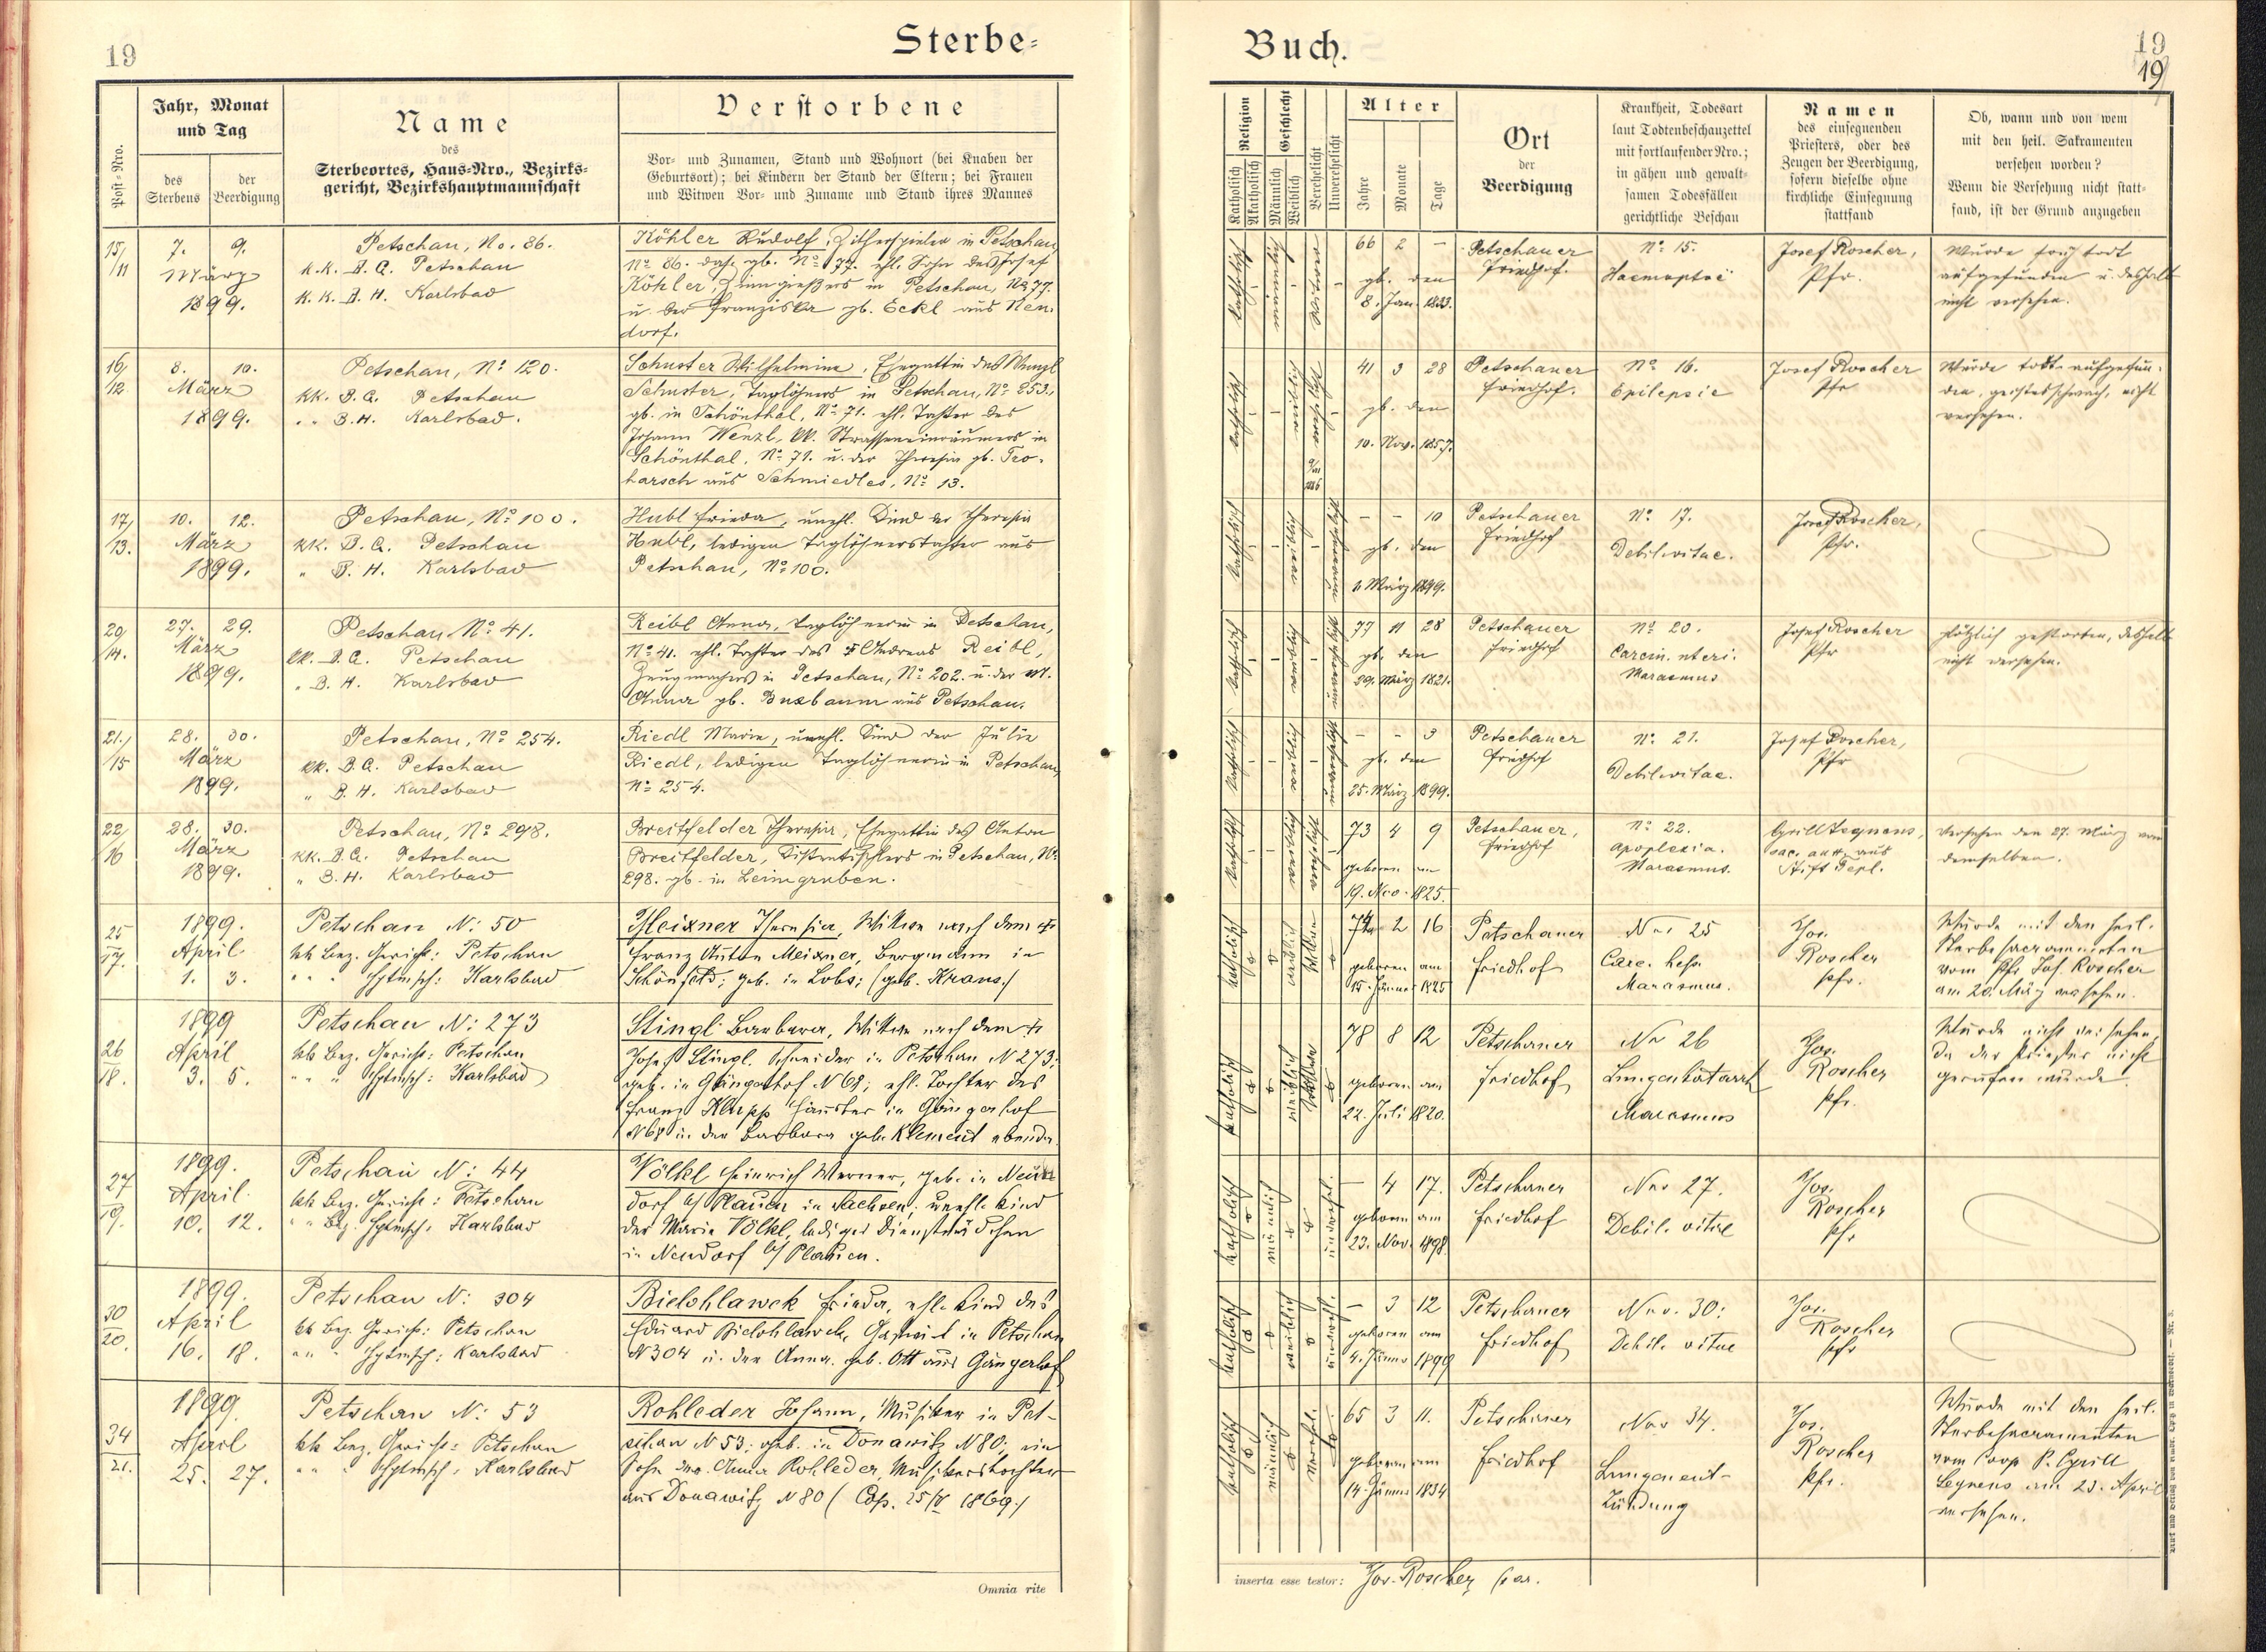 19
Sterbe-
Post-Nro.
Jahr, Monat
und Tag
des
Sterbens
der
Beerdigung
Name
des
Sterbeortes, Haus-Nro., Bezirks-
gericht, Bezirkshauptmannschaft
Verstorbene
Vor- und Zunamen, Stand und Wohnort (bei Knaben der
Geburtsort); bei Kindern der Stand der Eltern; bei Frauen
und Witwen Vor- und Zuname und Stand ihres Mannes
15/
/11
7. 9.
März
1899.
Petschau, No. 86.
k.k. B.G. Petschau
k.k. B.H. Karlsbad
Köhler Rudolf, Zitherspieler in Petschau,
No 86. das. gb. No 77. ehl. Sohn des Josef
Köhler, Zinngießers in Petschau, No 77.
u. der Franziska gb. Eckl aus Neu-
dorf.
16/
/12
8. 10.
März
1899.
Petschau, No 120.
kk. B.G. Petschau
" " B.H. Karlsbad.
Schuster Wilhelmine, Ehegattin des Wenzl
Schuster, Taglöhners in Petschau, No 253.,
gb. in Schönthal, No 71. ehl. Tochter des
Johann Wenzl, kk. Strasseneinräumers in
Schönthal, No 71. u. der Theresia gb.
aus Schmiedles, No 13.
17/
/13.
10. 12.
März
1899.
Petschau, No 100.
kk. B.G. Petschau
" B.H. Karlsbad
Hubl Frieda, unehl. Kind der Theresia
Hubl, ledigen Taglöhnerstochter aus
Petschau, No 100.
20/
/14.
27. 29.
März
1899.
Petschau No 41.
kk. B.G. Petschau
" B.H. Karlsbad
Reibl Anna, Taglöhnerin in Petschau,
No 41. ehl. Tochter des Andreas Reibl,
Zeugmachers in Petschau, No 202. u. der
Anna gb. Buxbaum aus Petschau.
21./
/15
28. 30.
März
1899.
Petschau, No 254.
kk. B.G. Petschau
" B.H. Karlsbad
Riedl Marie, unehl. Kind der Julie
Riedl, ledigen Taglöhnerin in Petschau,
No 254.
22/
/16
28. 30.
März
1899.
Petschau, No 298.
kk. B.G. Petschau
" B.H. Karlsbad
Breitfelder Theresia, Ehegattin des Anton
Breitfelder, in Petschau, No
298. gb. in Leimgruben.
25
17.
1899.
April
1. 3.
Petschau N: 50
kk Bez. Gericht: Petschau
" " " Hptmsch: Karlsbad
Meixner Theresia, Witwe nach dem †
Franz Anton Meixner, Bergmann in
Schönfeld; geb. in Lobs; (geb. Kraus.)
26
18.
1899
April
3. 5.
Petschau N: 273
kk Bez. Gericht: Petschau
" " " Hptmsch: Karlsbad
Stingl Barbara, Witwe nach dem †
Josef Stingl, Schneider in Petschau N 273;
geb. in Gängerhof N 68; ehl. Tochter des
Franz Klupp Häusler in Gängerhof
N 68 u. der Barbara geb. Klement ebenda.
27
19.
1899.
April
10. 12.
Petschau N: 44
kk Bez. Gericht: Petschau
" " Bez. Hptmsch: Karlsbad
Völkl Heinrich Werner, geb. in Neun
dorf b/ Plauen in Sachsen; unehl. Kind
der Marie Völkl, lediges Dienstmädchen
in Neudorf b/ Plauen.
30
20.
1899.
April
16. 18.
Petschau N: 304
kk Bez. Gericht: Petschau
" " " Hptmsch: Karlsbad
Bielohlawek Frieda, ehl. Kind des
Eduard Bielohlawek, in Petschau
N 304 u. der Anna geb. Ott aus Gängerhof
34
21.
1899.
April
25. 27.
Petschau N: 53
kk Bez. Gericht: Petschau
" " " Hptmsch: Karlsbad
Rohleder Johann, Musiker in Pet-
schau N 53; geb. in Donawitz N 80; ein
Sohn der Anna Rohleder, Musikerstochter
aus Donawitz N 80 (Cop. 25/IV 1869.)
Omnia rite
Buch.
19
19
Religion
Katholisch
Akatholisch
Geschlecht
Männlich
Weiblich
Verehelicht
Unverehelicht
Alter
Jahre
Monate
Tage
Ort
der
Beerdigung
Krankheit, Todesart
laut Todtenbeschauzettel
mit fortlaufender Nro.;
in gähen und gewalt-
samen Todesfällen
gerichtliche Beschau
Namen
des einsegnenden
Priesters, oder des
Zeugen der Beerdigung,
sofern dieselbe ohne
kirchliche Einsegnung
stattfand
Ob, wann und von wem
mit den heil. Sakramenten
versehen worden?
Wenn die Versehung nicht statt-
fand, ist der Grund anzugeben
katholisch
männlich
Witwer
66 2 –
gb. den
8. Jan. 1833.
Petschauer
Friedhof.
No 15.
Haemoptoë
Josef Roscher,
Pfr.
Wurde früh todt
aufgefunden u. deshalb
nicht versehen.
katholisch
weiblich
verehelicht
41 3 28
gb. den
10. Nov. 1857.
Petschauer
Friedhof.
No 16.
Epilepsie
Josef Roscher
Pfr
Wurde todt aufgefun-
den, geistesschwach, nicht
versehen.
katholisch
weiblich
unverehelicht
– – 10
gb. den
1. März 1899.
Petschauer
Friedhof
No 17.
Debil. vitae.
Josef Roscher,
Pfr.
katholisch
weiblich
unverehelicht
77 11 28
gb. den
29. März 1821.
Petschauer
Friedhof
No 20.
Carcin. uteri.
Marasmus
Josef Roscher
Pfr
plötzlich gestorben, deshalb
nicht versehen.
katholisch
weiblich
unverehelicht
– – 3
gb. den
25. März 1899.
Petschauer
Friedhof
No 21.
Debil. vitae.
Josef Roscher,
Pfr
katholisch
weiblich
verehelicht
73 4 9
geboren am
19. Nov. 1825.
Petschauer,
Friedhof
No 22.
Apoplexia.
Marasmus.
Cyrill Legnens,
aus
Stift Tepl.
Versehen den 27. März von
demselben.
katholisch
weiblich
Witwe
74 2 16
geboren am
15. Jänner 1825
Petschauer
Friedhof
Nro 25
Carc. hep.
Marasmus.
Jos.
Roscher
Pfr.
Wurde mit den heil.
Sterbesacramenten
vom Pfr Jos. Roscher
am 20. März versehen.
katholisch
weiblich
Witwe
78 8 12
geboren am
22. Juli 1820.
Petschauer
Friedhof
Nr 26
Lungenkatarrh
Marasmus
Jos.
Roscher
Pfr.
Wurde nicht versehen,
da der Priester nicht
gerufen wurde.
katholisch
männlich
unverehel.
– 4 17.
geboren am
23. Nov. 1898.
Petschauer
Friedhof
Nro 27.
Debil. vitae
Jos.
Roscher
Pfr
katholisch
weiblich
unverehl.
– 3 12
geboren am
4. Jänner 1899
Petschauer
Friedhof
Nro. 30:
Debil. vitae
Jos.
Roscher
Pfr
katholisch
männlich
verehel.
65 3 11.
geboren am
14. Jänner 1834
Petschauer
Friedhof
Nro 34.
Lungenent-
zündung
Jos.
Roscher
Pfr.
Wurde mit den heil.
Sterbesacramenten
vom Coop P. Cyrill
Legnens am 23. April
versehen.
inserta esse testor: Jos. Roscher par.